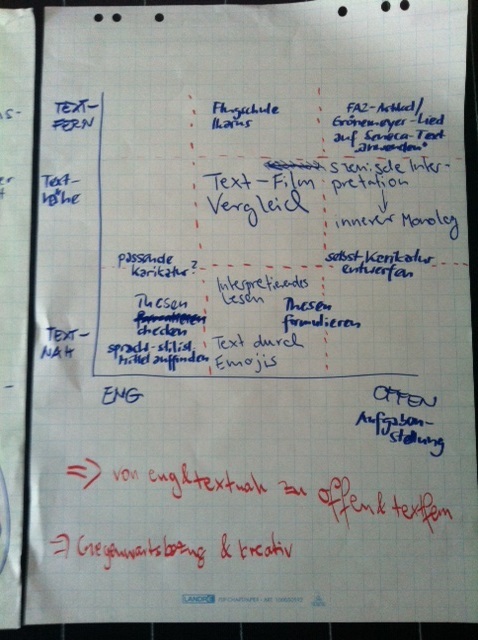 TEXT-
FERN
Flugschule
Ikarus
FAZ-Artikel/
Grönemeyer-Lied
auf Seneca-Text
"anwenden"
Text-
nähe
Text-Film
Vergleich
szenische Inter-
pretation
innerer Monolog
passende
Karikatur?
selbst Karikatur
entwerfen
Interpretierendes
Lesen
Thesen
checken
Thesen
formulieren
TEXT-
NAH
sprachl.-stilist.
Mittel auffinden
Text durch
Emojis
ENG
OFFEN
Aufgaben-
stellung
=> von eng & textnah zu offen & textfern
=> Gegenwartsbezug & kreativ
LANDRÉ